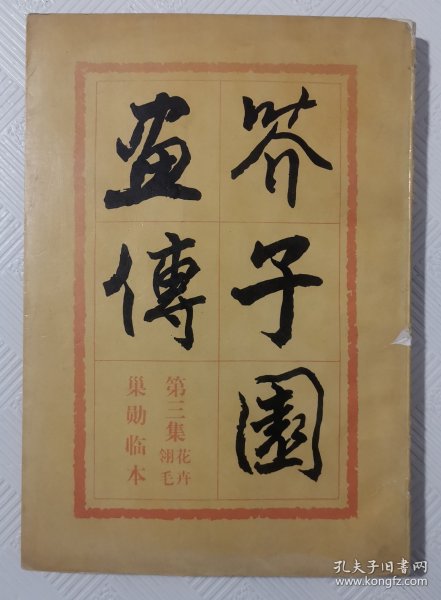 芥子園
畫傳
第三集花卉翎毛
巢勋临本
孔夫子旧书网
www.kongfz.com